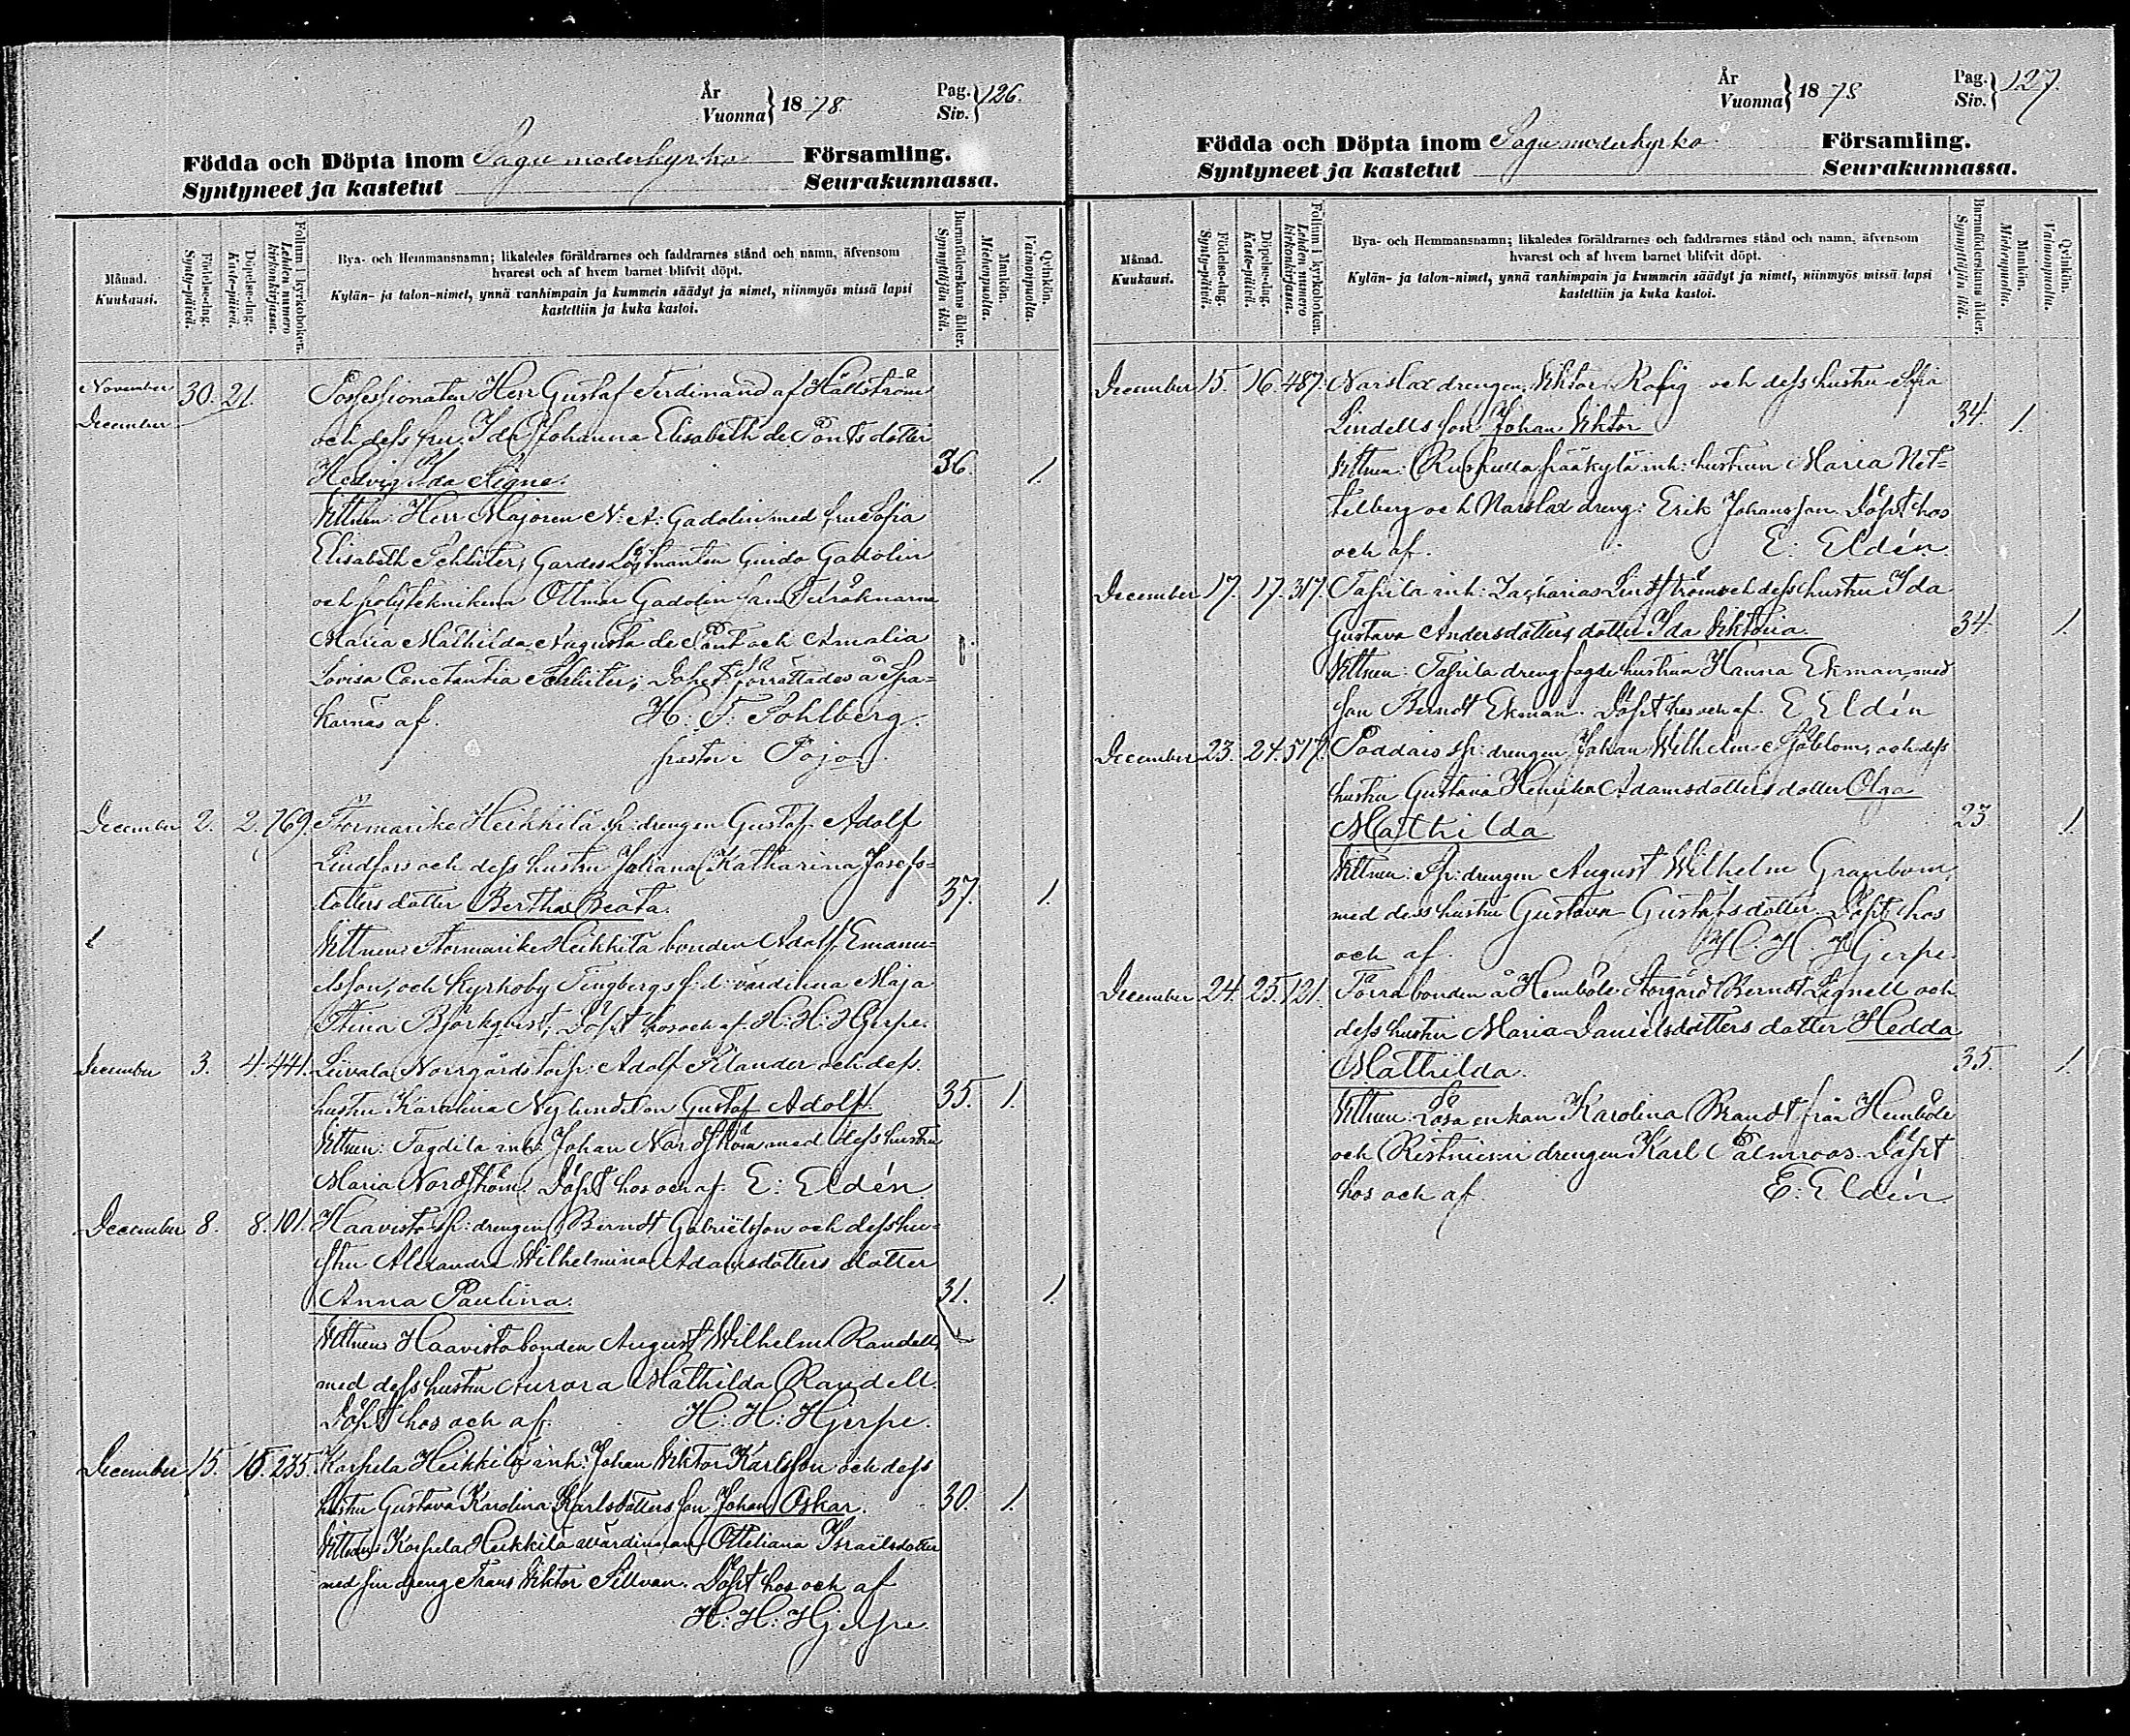 År
Vuonna } 1878.
Pag.
Siv. } 126.
Födda och Döpta inom Sagu moderkyrko Församling.
Syntyneet ja kastetut Seurakunnassa.
Månad.
Kuukausi.
Födelse-dag.
Synty-päivä.
Döpelse-dag.
Kaste-päivä.
Folium i kyrkoboken.
Lehden numero
kirkonkirjassa.
Bya- och Hemmansnamn; likaledes föräldrarnes och faddrarnes stånd och namn, äfvensom
hvarest och af hvem barnet blifvit döpt.
Kylän- ja talon-nimet, ynnä vanhimpain ja kummein säädyt ja nimet, niinmyös missä lapsi
kastettiin ja kuka kastoi.
Barnaföderskans ålder.
Synnyttäjän ikä.
Mankön.
Miehenpuolta.
Qvinkön.
Vaimonpuolta.
November 30. 21. Possessionaten Herr Gustaf Ferdinand af Hällström
December och dess fru Ida Johanna Elisabeth de Ponts dotter
Hedvig Ida Signe. 36. 1.
Vittnen: Herr Majoren N: A: Gadolin med fru Sofia
Elisabeth Schlüter, Gardes Löjtnanten Guido Gadolin
och polyteknikern Ottmar Gadolin samt Fröknarna
Maria Mathilda Augusta de Pont och Amalia
Lovisa Constantia Schlüter; Dopet förrättades å Spa-
karnäs af H: F: Pohlberg.
pastor i Pojo.
December 2. 2. 769. Stormarike Heikkilä sp: drengen Gustaf Adolf
Lindfors och dess hustru Juliana Katharina Josefs-
dotters dotter Bertha Beata. 37. 1.
Vittnen: Stormarike Heikkilä bonden Adolf Emanu-
elsson, och Kyrkoby Tingbergs f: d: värdinna Maja
Stina Björkqvist, Döpt hos och af H: H: Hjerpe.
December 3. 4. 441. Leivala Norrgårds torp: Adolf Filander och dess
hustru Karolina Neglunds son Gustaf Adolf. 35. 1.
Vittnen: Tagdila inh: Johan Nordström med dess hustru
Maria Nordström. Döpt hos och af E: Eldén
December 8. 8. 101. Haavisto sp: drengen Berndt Gabrielsson och dess hu-
stru Alexandra Wilhelmina Adamsdotters dotter
Anna Paulina. 31. 1.
Vittnen Haavisto bonden August Wilhelm Randell,
med dess hustru Aurora Mathilda Randell.
Döpt hos och af H: H: Hjerpe.
December 15. 15. 235. Karpela Heikkilä inh: Johan Viktor Karlsson och dess
hustru Gustava Karolina Karlsdotters son Johan Oskar. 30. 1.
Vittnen: Karpela Heikkilä värdinnan Ottiliana Israelsdotter
med sin dreng Frans Viktor Sillvan. Döpt hos och af
H: H: Hjerpe.
År
Vuonna } 1878
Pag.
Siv. } 127.
Födda och Döpta inom Sagu moderkyrko Församling.
Syntyneet ja kastetut Seurakunnassa.
Månad.
Kuukausi.
Födelse-dag.
Synty-päivä.
Döpelse-dag.
Kaste-päivä.
Folium i kyrkoboken.
Lehden numero
kirkonkirjassa.
Bya- och Hemmansnamn; likaledes föräldrarnes och faddrarnes stånd och namn, äfvensom
hvarest och af hvem barnet blifvit döpt.
Kylän- ja talon-nimet, ynnä vanhimpain ja kummein säädyt ja nimet, niinmyös missä lapsi
kastettiin ja kuka kastoi.
Barnaföderskans ålder.
Synnyttäjän ikä.
Mankön.
Miehenpuolta.
Qvinkön.
Vaimonpuolta.
December 15. 16. 487. Narslax drengen, Viktor Rosig och dess hustru Sofia
Lindells son Johan Viktor 34. 1.
Vittnen: inh: hustrun Maria Net-
telberg och Narslax dreng: Erik Johansson. Döpt hos
och af. E: Eldén.
December 17. 17. 317. Tapila inh: Zacharias Lindström och dess hustru Ida
Gustava Andersdotters dotter Ida Viktoria. 34. 1.
Vittnen: Tapila drengfogde hustrun Hanna Ekman, med
son Berndt Ekman. Döpt hos och af E Eldén
December 23. 24. 517. Poddais sp: drengen Johan Wilhelm Sjöblom, och dess
hustru Gustava Henrika Adamsdotters dotter Olga
Mathilda 23 1.
Vittnen: Sp: drengen August Wilhelm Granbom,
med dess hustru Gustava Gustafsdotter. Döpt hos
och af. H. H. Hjerpe.
December 24. 25. 121. Förra bonden å Hemböle Storgård Berndt Lignell och
dess hustru Maria Danielsdotters dotter Hedda
Mathilda. 35. 1.
Vittnen: Lösa enkan Karolina Brandt från Hemböle
och Ristniemi drengen Karl Palmroos. Döpt
hos och af E: Eldén